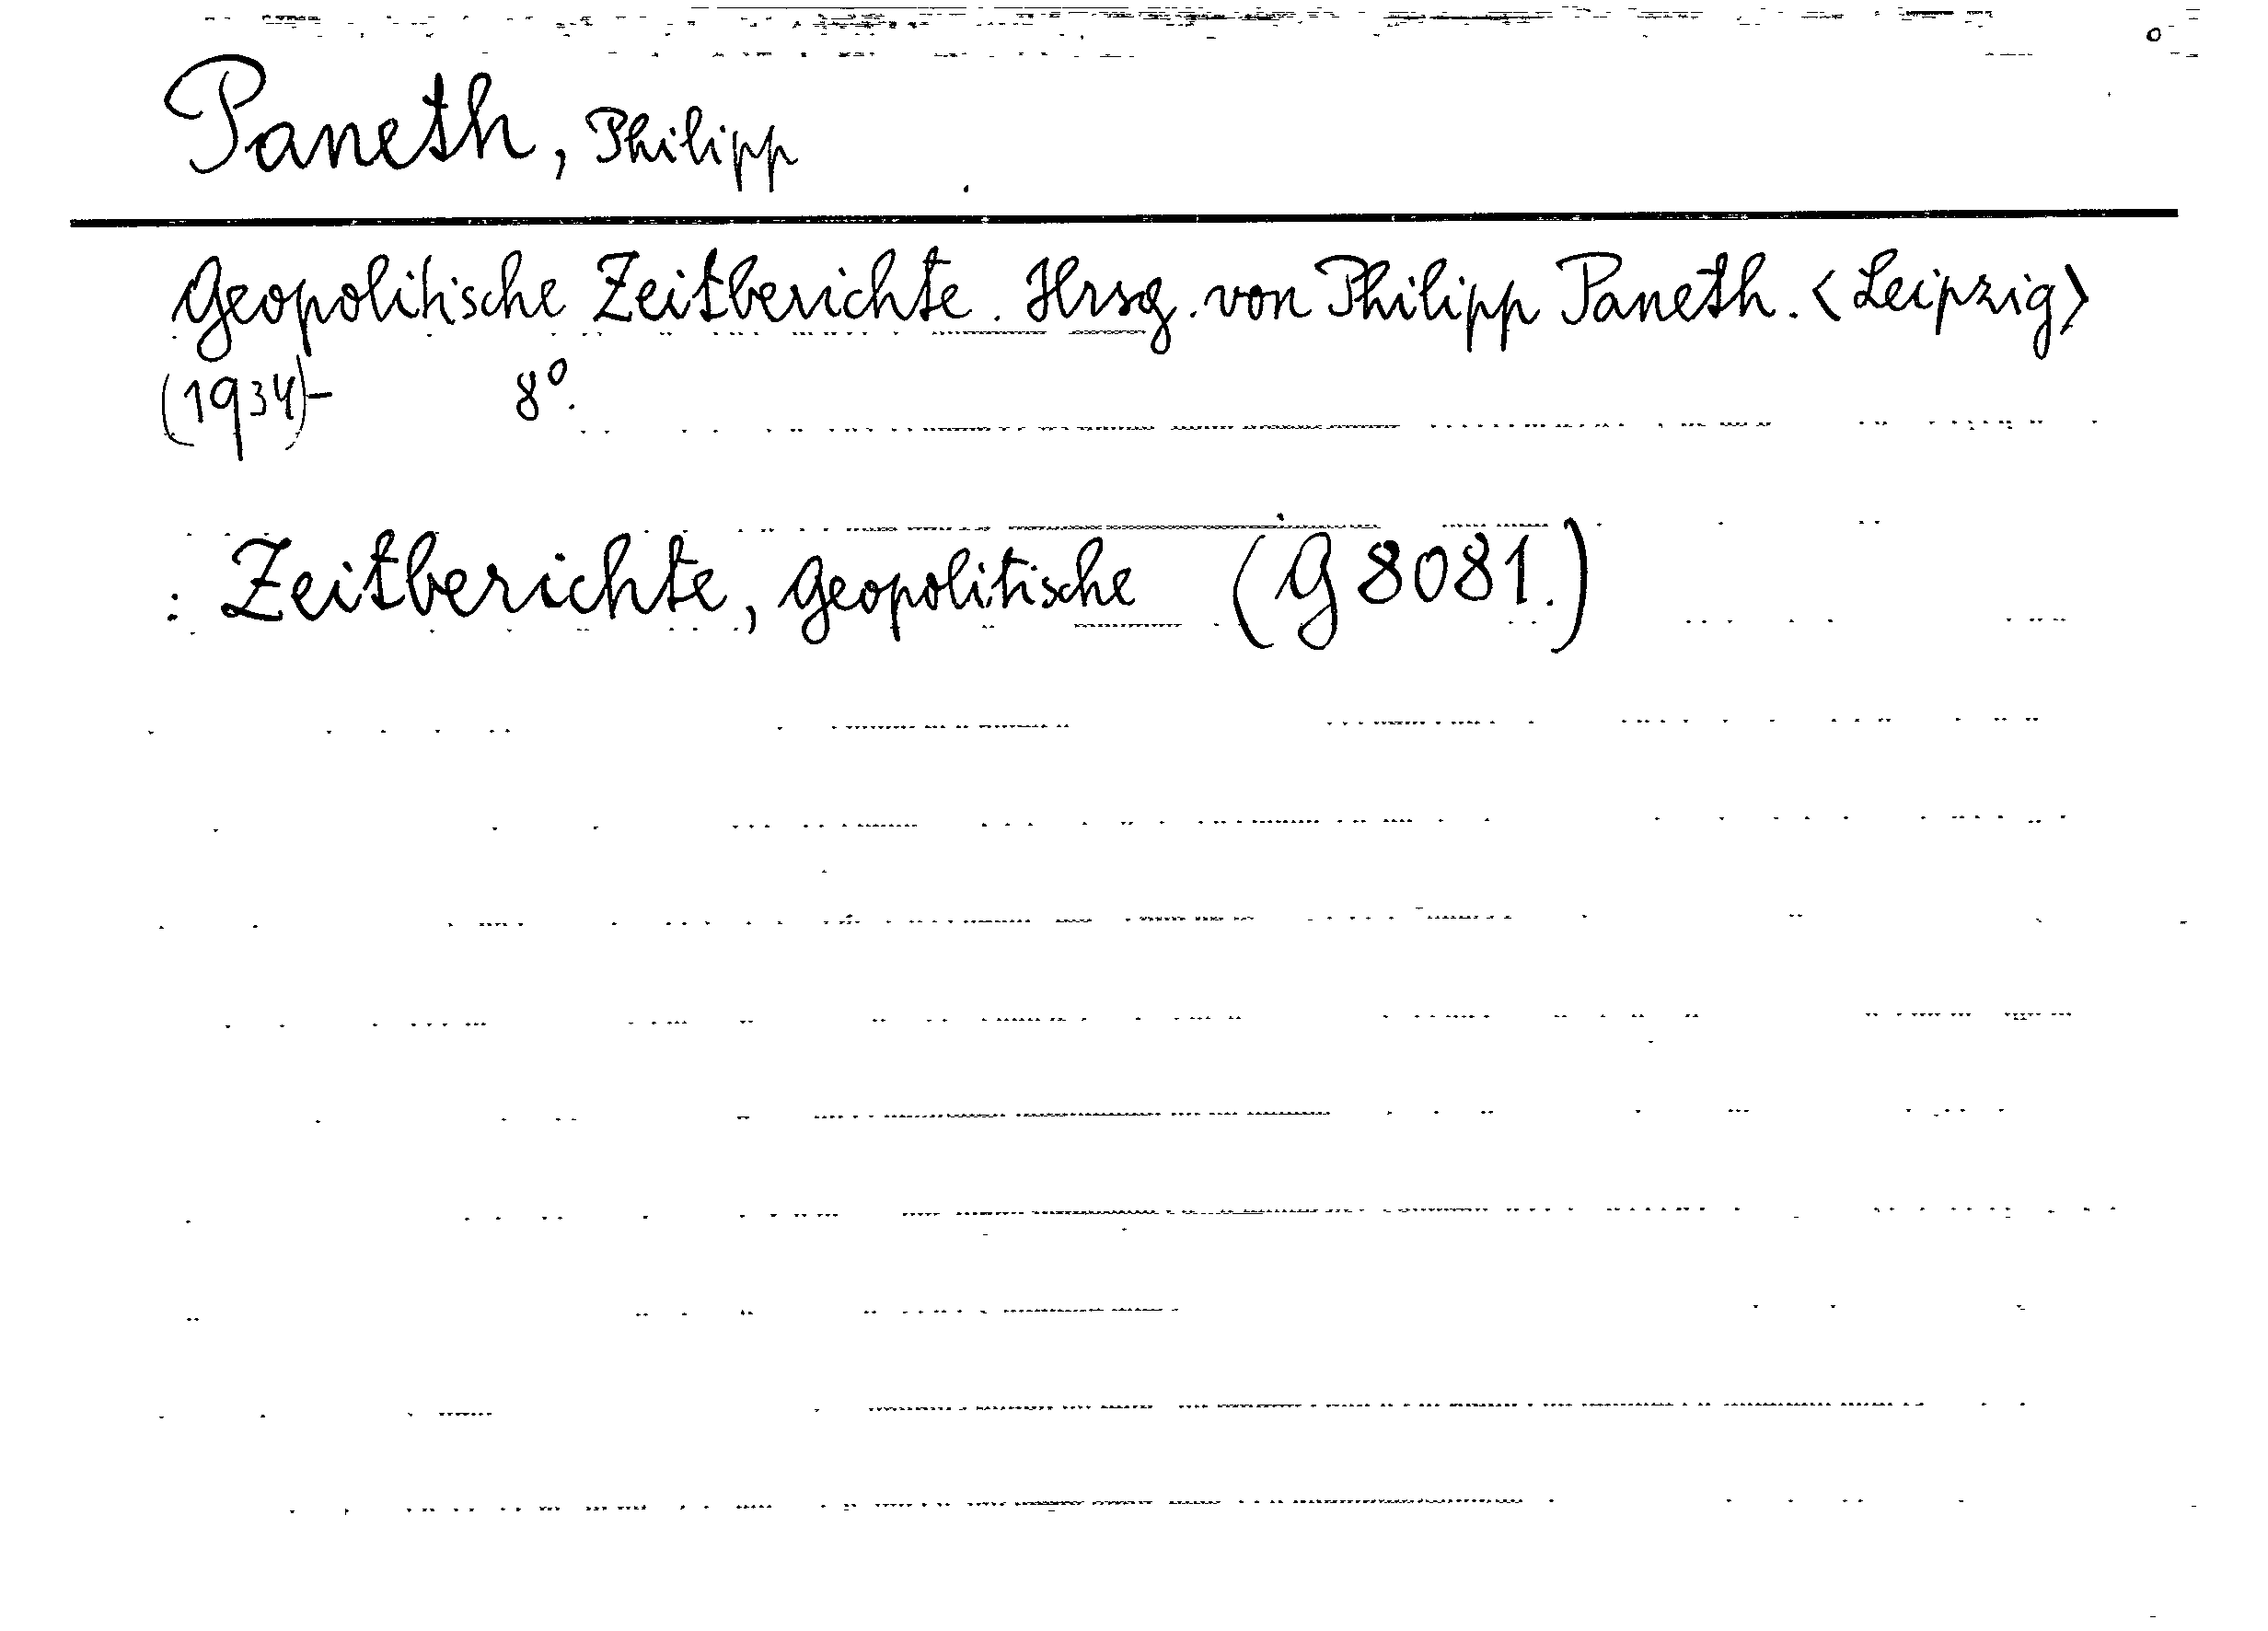 Paneth, Philipp
Geopolitische Zeitberichte. Hrsg. von Philipp Paneth. <Leipzig>
(1934)- 8°.
: Zeitberichte, Geopolitische (G 8081.)